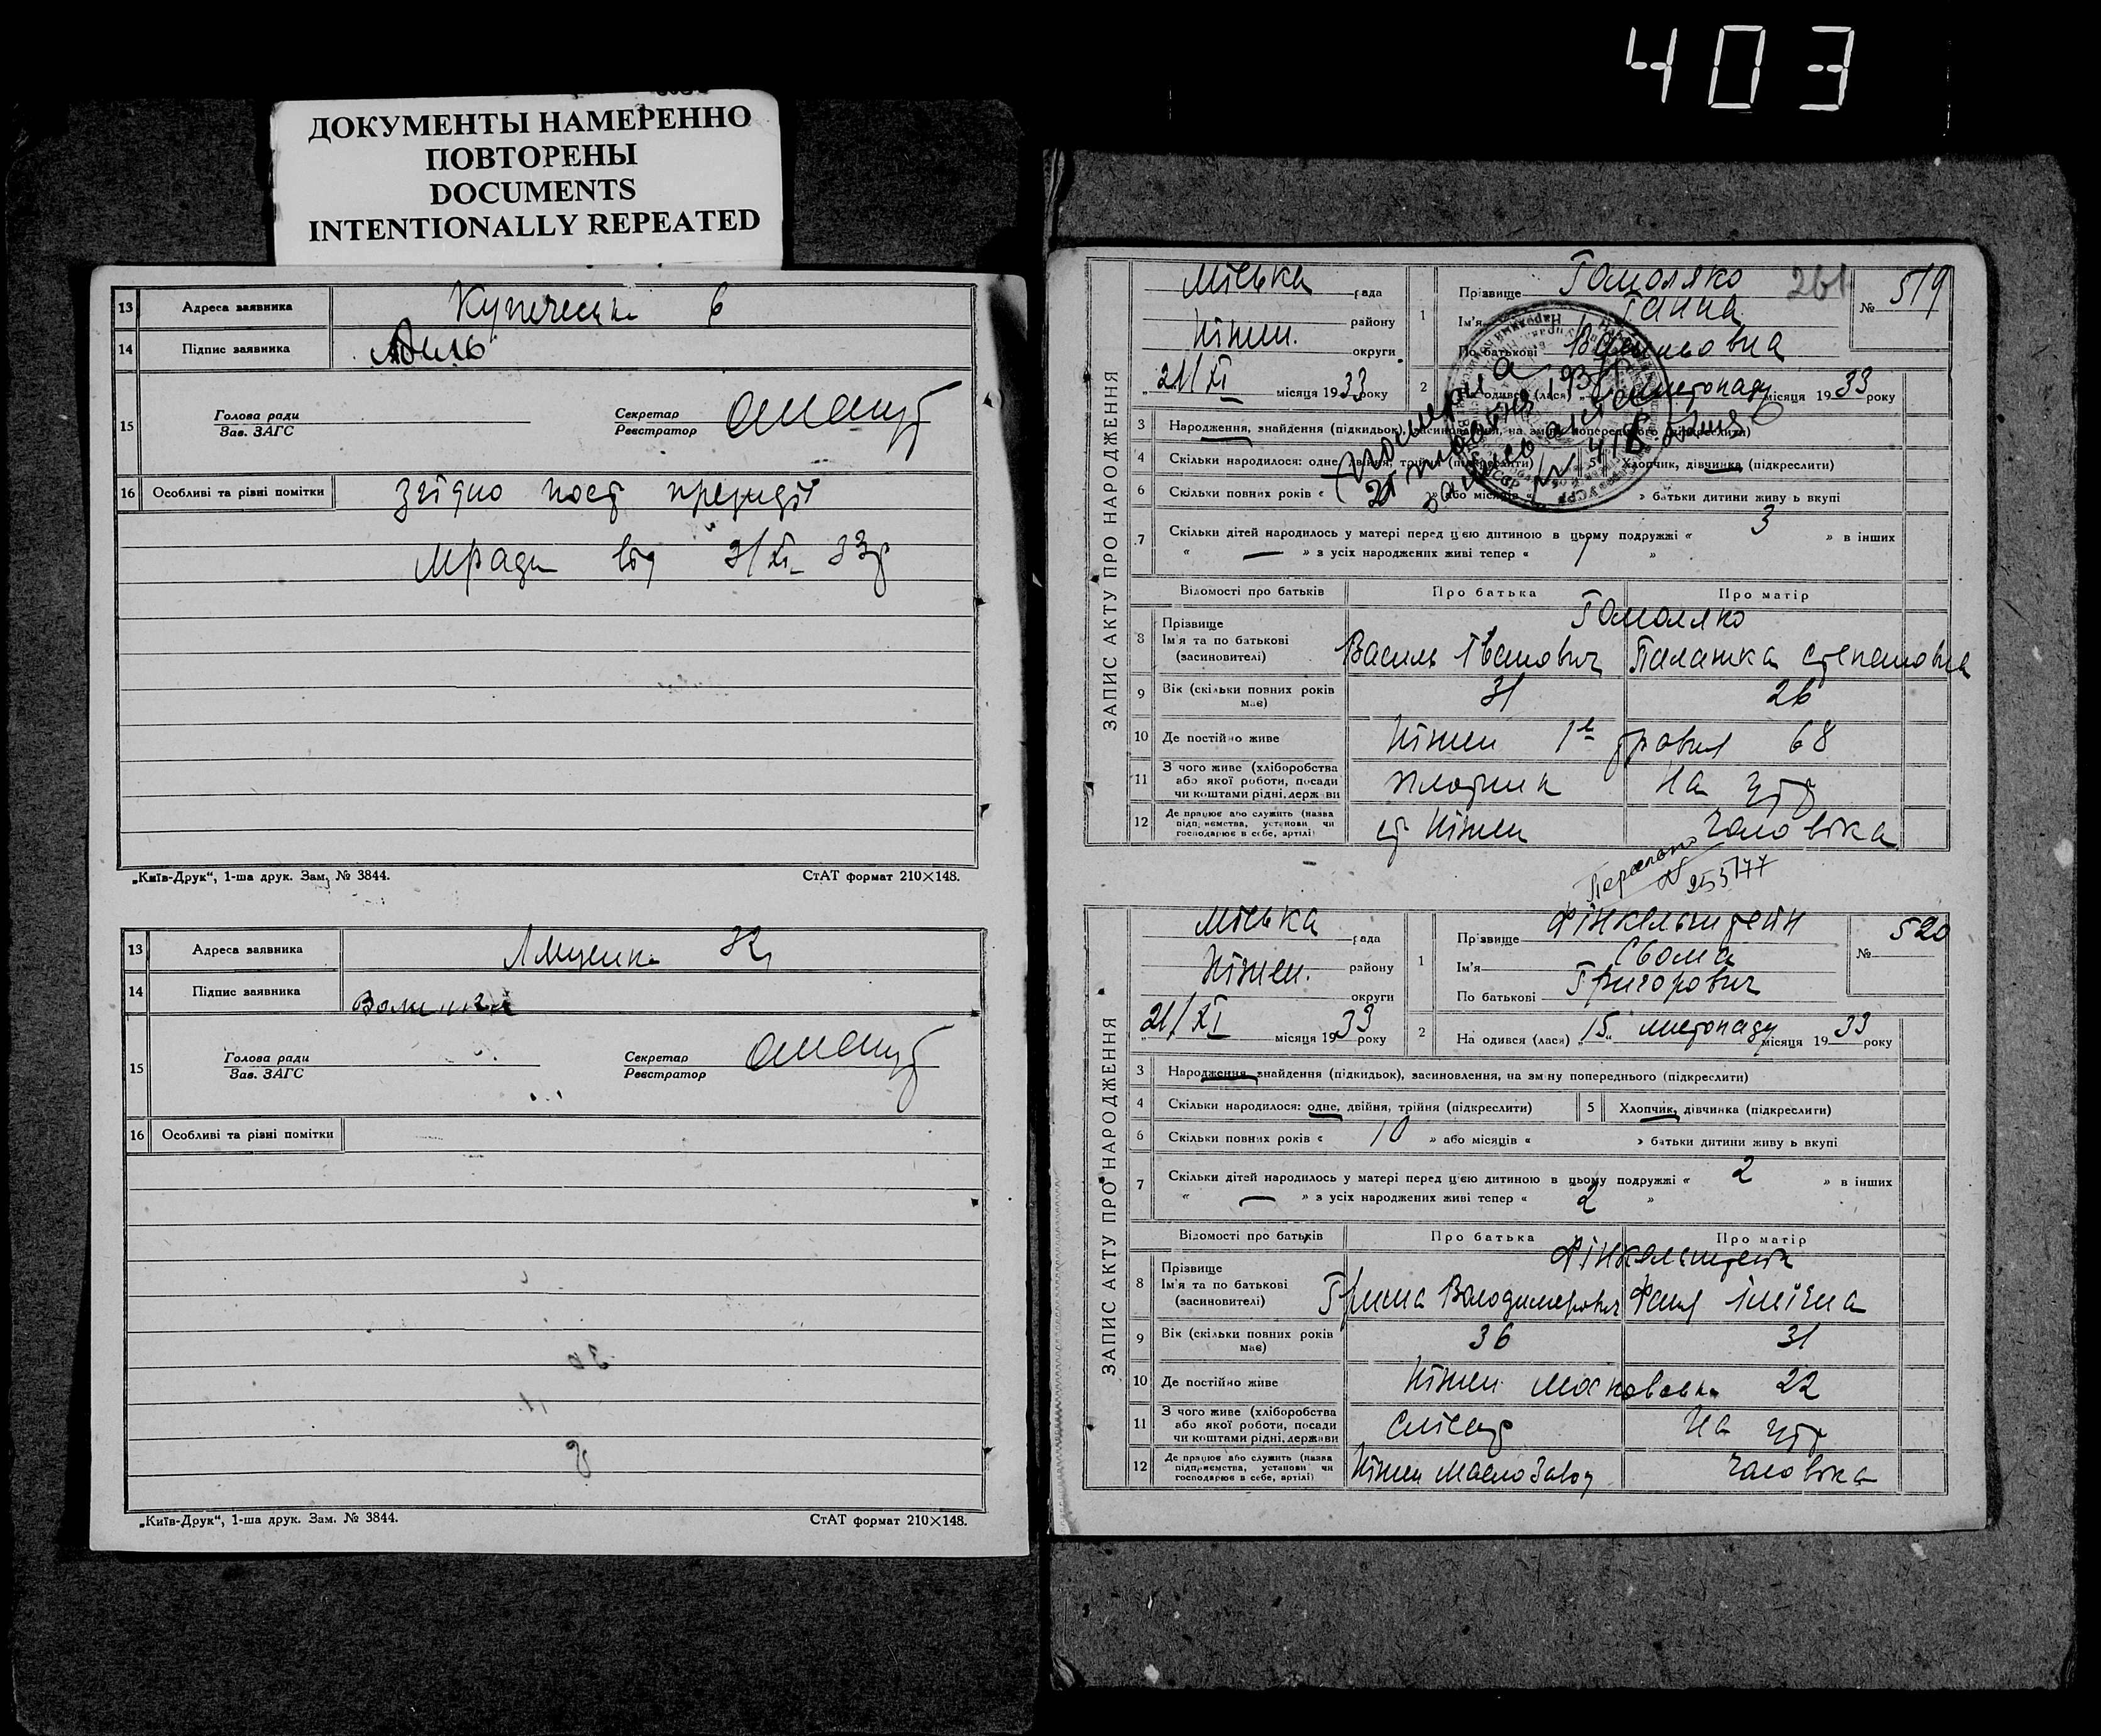 403
ДОКУМЕНТЫ НАМЕРЕННО
ПОВТОРЕНЫ
DOCUMENTS
INTENTIONALLY REPEATED
13 Адреса заявника 6
14 Підпис заявника
15 Голова ради Секретар
Зав. ЗАГС Реєстратор
16 Особливі та різні помітки Згідно пост президії
мради від 33р
„Київ-Друк“, 1-ша друк. Зам. № 3844. СтАТ формат 210×148.
13 Адреса заявника
14 Підпис заявника
15 Голова ради Секретар
Зав. ЗАГС Реєстратор
16 Особливі та різні помітки
„Київ-Друк“, 1-ша друк. Зам. № 3844. СтАТ формат 210×148.
ЗАПИС АКТУ ПРО НАРОДЖЕННЯ
261
Міська рада 1 Прізвище Гомоляко № 519
Ніжен. району Ім'я Ганна
округи По батькові Васильовна
„21/XI місяця 1933 року 2 На одився (лася) листопаду місяця 1933 року
3 Народження, знайдення (підкидьок), засиновлення, на зміну попереднього (підкреслити)
4 Скільки народилося: одне, двійня, трійня (підкреслити) 5 Хлопчик, дівчинка (підкреслити)
6 Скільки повних років « » або місяців « » батьки дитини живу ь вкупі
7 Скільки дітей народилось у матері перед цією дитиною в цьому подружжі « 3 » в інших
« — » з усіх народжених живі тепер « 1 »
Померла
1933
Відомості про батьків Про батька Про матір
8 Прізвище Гомоляко
Ім'я та по батькові Василь Іванович Палажка Степановна
(засиновителі)
9 Вік (скільки повних років має) 31 26
10 Де постійно живе Ніжен 68
11 З чого живе (хліборобства або якої роботи, посади чи коштами рідні, держави плотник На утр
12 Де працює або служить (назва підприємства, установи чи господарює в себе, артілі) ст Ніжен чоловіка
25577
ЗАПИС АКТУ ПРО НАРОДЖЕННЯ
Міська рада 1 Прізвище Фінкельштейн № 520
Ніжен. району Ім'я
округи По батькові Григорович
„21/XI місяця 1933 року 2 На одився (лася) „15“ листопаду місяця 1933 року
3 Народження, знайдення (підкидьок), засиновлення, на зміну попереднього (підкреслити)
4 Скільки народилося: одне, двійня, трійня (підкреслити) 5 Хлопчик, дівчинка (підкреслити)
6 Скільки повних років « 10 » або місяців « » батьки дитини живу ь вкупі
7 Скільки дітей народилось у матері перед цією дитиною в цьому подружжі « 2 » в інших
« — » з усіх народжених живі тепер « 2 »
Відомості про батьків Про батька Про матір
8 Прізвище Фінкельштейн
Ім'я та по батькові Гриша Володимирович Фаня
(засиновителі)
9 Вік (скільки повних років має) 36 31
10 Де постійно живе Ніжен Московська 22
11 З чого живе (хліборобства або якої роботи, посади чи коштами рідні, держави слісар На утр
12 Де працює або служить (назва підприємства, установи чи господарює в себе, артілі) Ніжен Маслозавод чоловіка